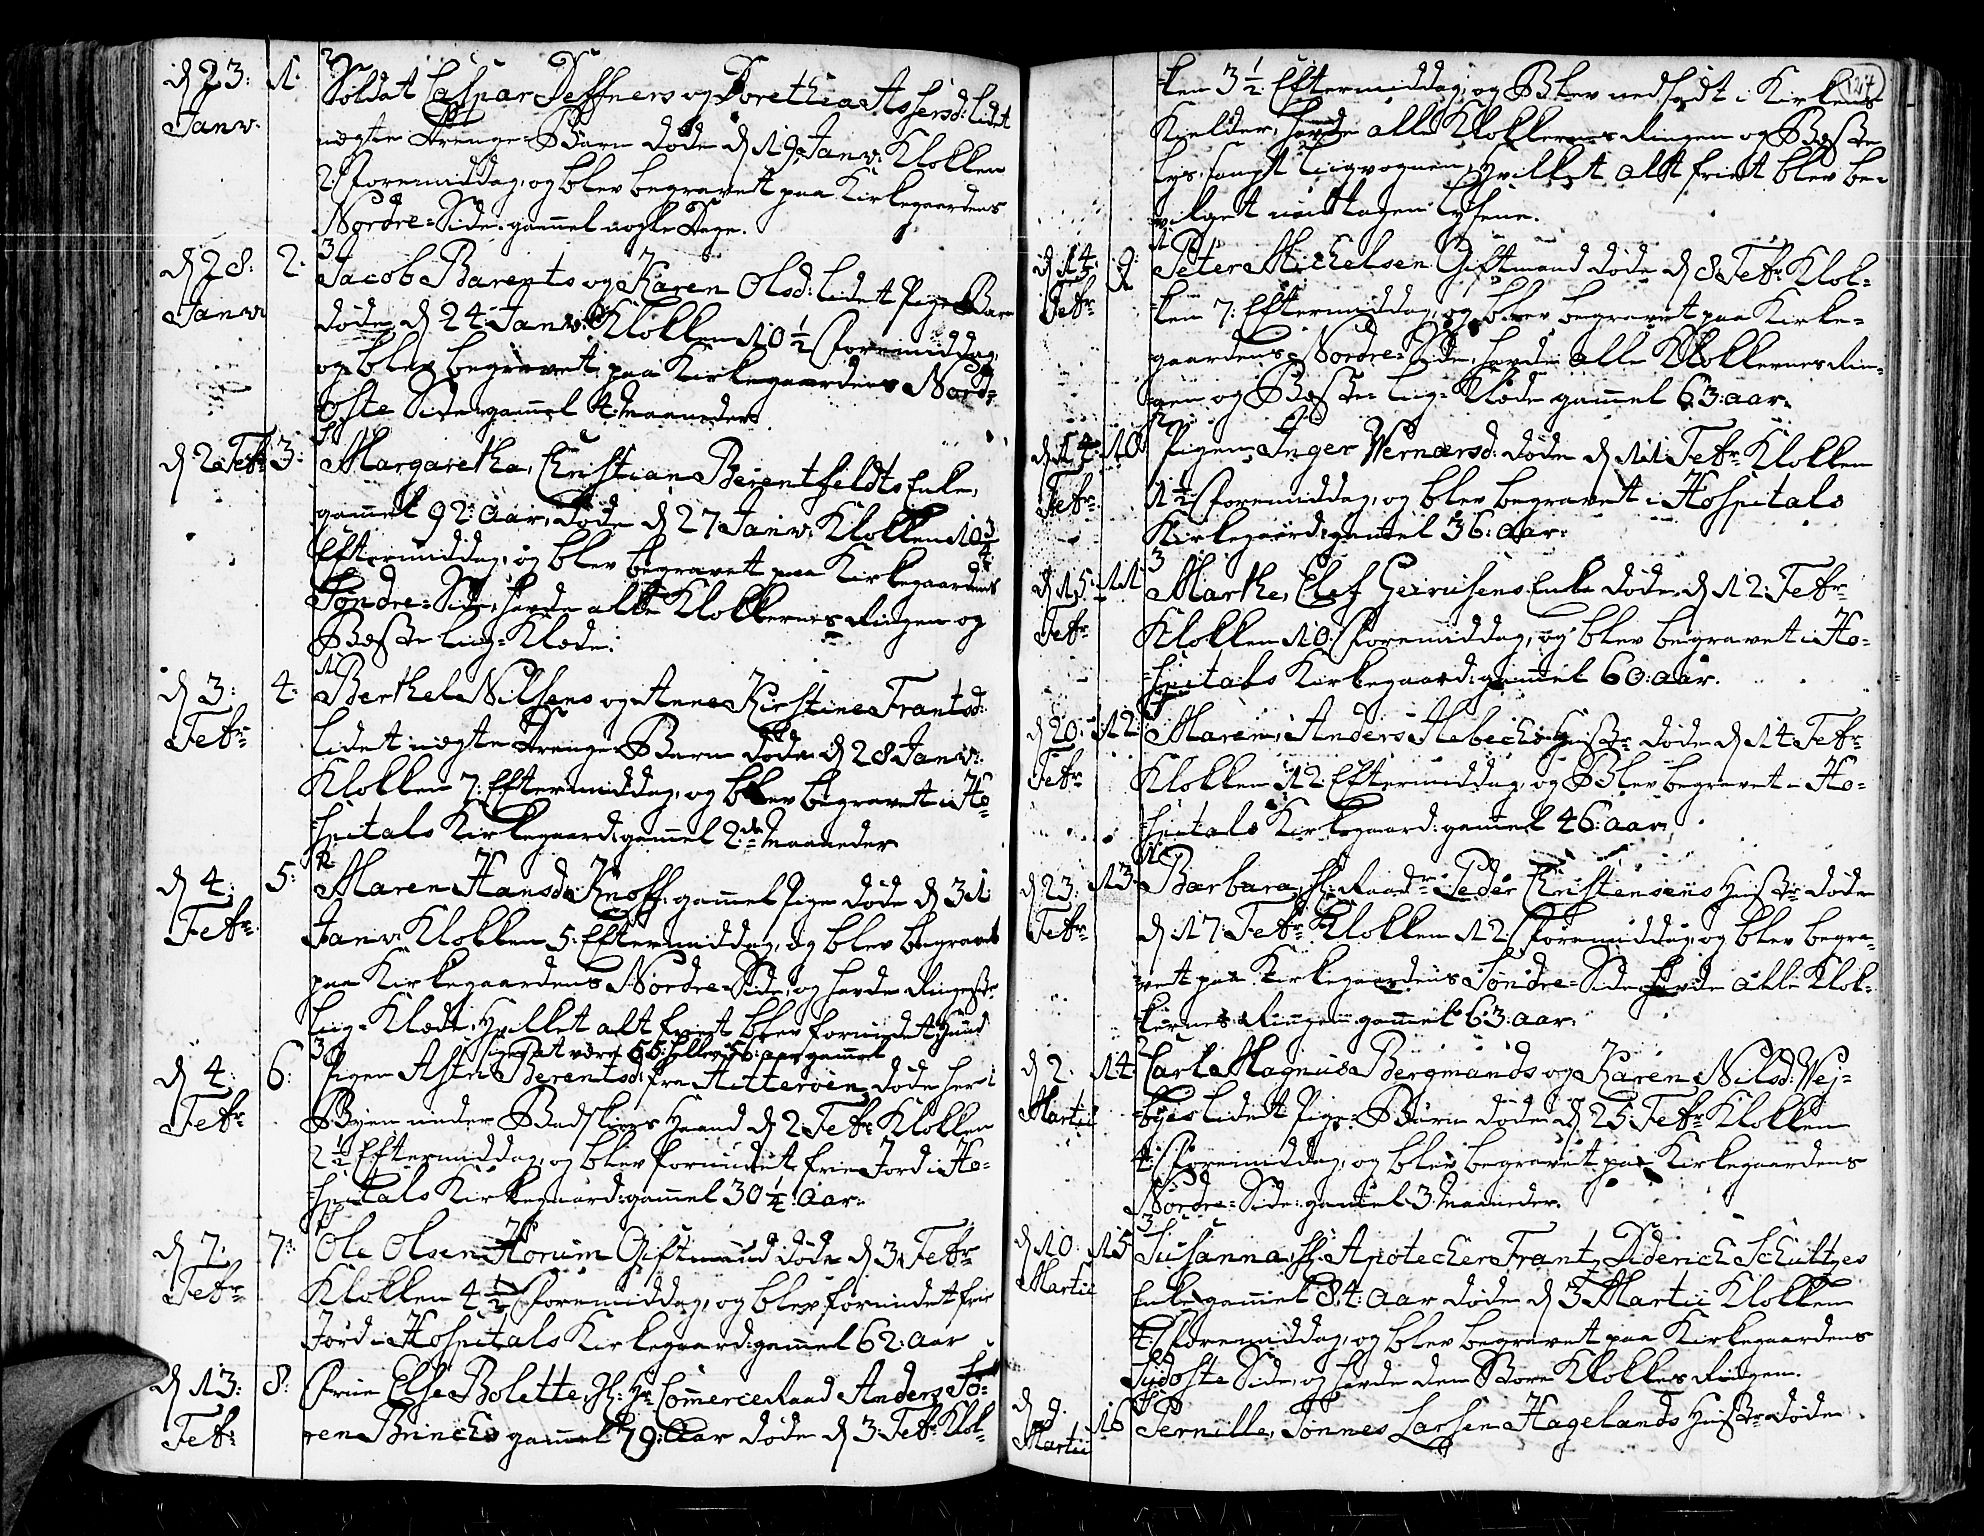 d 23: 1. Soldat Caspar Deffners og Dorethia Assersd: lidet
Janv. ægte Drenge-Barn døde d 19 Janv: Klokken
2: Formiddag, og blev begravet paa Kirkegaardens
Nordre-Side: gammel nogle Dage.
3
d 28: 2. Jacob Barents og Karen Olsd: lidet Pige Barn
Janv døde d 24 Janv: Klokken 10 1/2 Formiddag,
og blev begravet paa Kirkegaardens Nord-
oste Side: gammel 4 Maaneder
d 2 Febr 3: Margaretha, Christian Berentfeldts Enke,
gammel 92: aar, døde d 27 Janv: Klokken 10 3/4
Eftermiddag, og blev begravet paa Kirkegaardens
Søndre-Side, havde alle Klokkernes Ringen og
Beste Liig-Klæde:
1
d 3: 4. Berthel Nilsens og Anne Kirstine Frantsd:
Febr lidet uægte Drenge Barn døde d 28 Janv:
Klokken 7: Eftermiddag, og blev begravet i Ho-
spitals Kirkegaard: gammel 2de Maaneder
2
d 4: 5: Maren Hansd: Knoff: gammel Pige døde d 31
Febr. Janv: Klokken 5: Eftermiddag, og blev begravet
paa Kirkegaardens Nordre-Side, og havde Ringeste
Liig-Klæde, Hvilket alt friet blev forundt
siges at være 55: heller 56: aar gammel
3
d 4: 6: Pigen Astri Berentsd: fra Hitterøen, døde her i
Febr Byen under Badskiers Haand d 2 Febr Klokken
2 1/2 Eftermiddag, og blev forundet frie Jord i Ho-
spitals Kirkegaard: gammel 30 1/4: Aar:
d 7: 7: Ole Olsen Horum Giftmand døde d 3 Febr
Febr Klokken 4 1/2 Formiddag, og blev forundet frie
Jord i Hospitals Kirkegaard: gammel 62: aar
d 13: 8: Frue Else Bolette, Sl: Hr Commerce Raad Anders Sø-
Febr ren Brinchs gammel 79: Aar døde d 3: Febr Klok-
127
ken 3 1/2 Eftermiddag, og Blev nedsadt i Kirkens
Kielder, havde alle Klokkernes Ringen og Beste
lys, sampt Liigvognen, Hvilket alt friet blev be-
vilget undtagen lysene.
1
d 14: 9: Peter Michelsen Giftmand døde d 8 Febr Klok-
Febr ken 7: Eftermiddag, og blev begravet paa Kirke-
gaardens Nordre-Side, havde alle Klokkernes Rin-
gen og Beste Liig-Klæde gammel 63: aar.
2
d 14: 10 Pigen Inger Wernersd: døde d 11 Febr Klokken
Febr 1 1/2: Formiddag, og blev begravet i Hospitals
Kirkegaard: gammel 36: aar:
3
d 15: 11 Marthe, Elef Geirulsens Enke døde d 12: Febr
Febr Klokken 10 Formiddag, og blev begravet i Ho-
spitals Kirkegaard: gammel 60: aar.
d 20: 12: Maren, Anders Aabechs Hustr døde d 14 Febr
Febr Klokken 12 Eftermiddag, og Blev begravet i Ho-
spitals Kirkegaard: gammel 46: aar.
d 23: 13 Barbara, Sl: Raadr Peder Christensens Hustr døde
Febr d 17: Febr Klokken 12: Formiddag og blev begra-
vet paa Kirkegaardens Søndre-Side havde alle Klok-
kernes Ringen gammel 63: aar.
d 2. 14 Carl Magnus Bergmands og Karen Nilsd: Wej-
Martii byes lidet Pige-Barn døde d 25 Febr Klokken
4: Formiddag, og blev begravet paa Kirkegaardens
Nordre-Side: gammel 3 Maaneder.
3
d 10: 15 Susanna, Sl: Apothecher Frantz Diderich Schultzes
Martii Enke gammel 84: aar døde d 3 Martii Klokken
4: Formiddag, og blev begravet paa Kirkegaardens
Sydoste Side, og havde den Store Klokkes Ringen.
d 9. 16 Pernille, Tønnes Larsen Hagelands Hustr døde
Martii